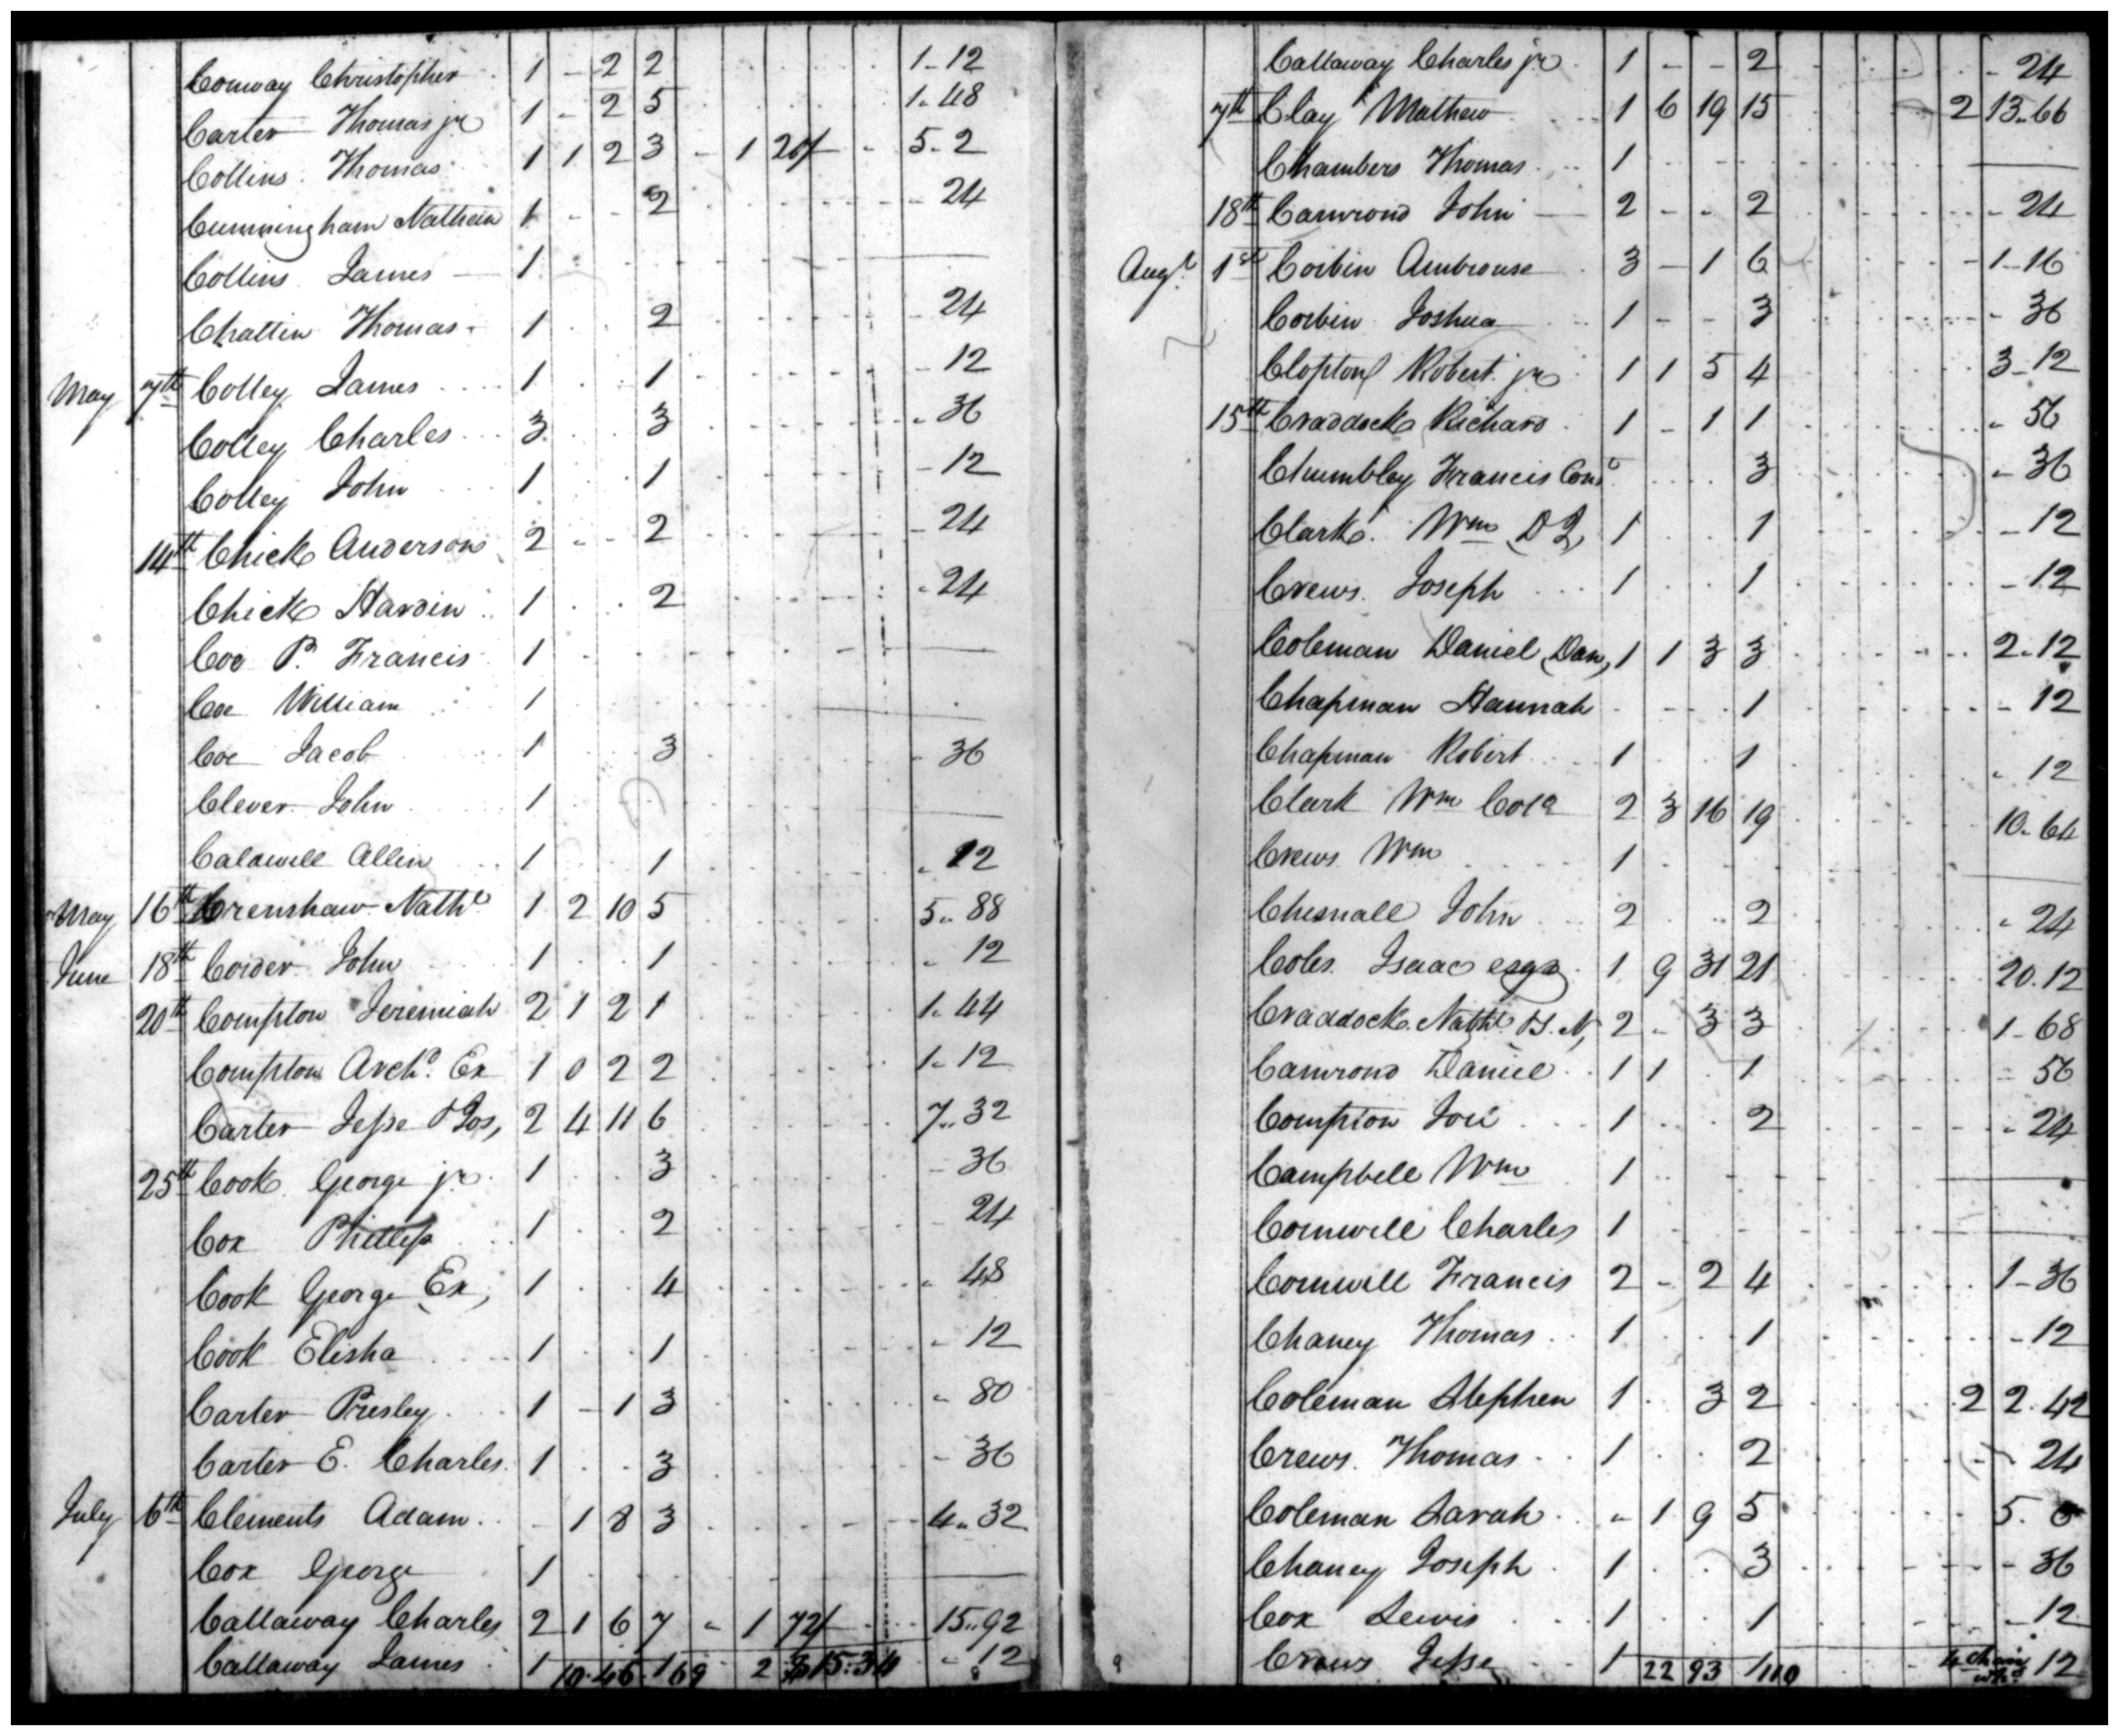 Conway Christopher 1 - 2 2 1-12
Carter Thomas jr 1 - 2 5 1.48
Collins Thomas 1 1 2 3 - 1 20/ - 5-2
Cunningham Nathan 1 - - 2 - 24
Collins James 1
Chattin Thomas 1 2 - 24
May 7th Colley James 1 1 - 12
Colley Charles 3 3 - 36
Colley John 1 1 - 12
14th Chick Anderson 2 - - 2 - 24
Chick Hardin 1 2 - 24
Coe P. Francis 1
Coe William 1
Coe Jacob 1 3 - 36
Clever John 1
Caldwell Allin 1 1 - 12
May 16th Crenshaw Nathl 1 2 10 5 5.. 88
June 18th Corder John 1 1 - 12
20th Compton Jeremiah 2 1 2 1 1. 44
Compton Archd. Ex 1 0 2 2 1. 12
Carter Jesse 2 4 11 6 7.. 32
25th Cook George jr 1 3 - 36
Cox Phillip 1 2 24
Cook George Ex, 1 4 - 48
Cook Elisha 1 1 - 12
Carter Presley 1 - 1 3 - 80
Carter E. Charles 1 3 - 36
July 6th Clements Adam - 1 8 3 4.. 32
Cox George 1
Callaway Charles 2 1 6 7 - 1 72/ 15..92
Callaway James 1 - 12
Callaway Charles jr 1 - - 2 - 24
7th Clay Mathew 1 6 19 15 2 13.66
Chambers Thomas 1
18th Camrond John 2 - - 2 - 24
Augt 1st Corbin Ambrouse 3 - 1 6 - 1-16
Corbin Joshua 1 - - 3 - 36
Clopton Robert jr 1 1 5 4 3-12
15th Craddock Richard 1 - 1 1 - 56
Chumbley Francis Cons 3 - 36
Clark Wm 1 1 - 12
Crews Joseph 1 1 - 12
Coleman Daniel (Dan) 1 1 3 3 2.12
Chapman Hannah 1 - 12
Chapman Robert 1 1 - 12
Clark Wm Colo 2 3 16 19 10.64
Crews Wm 1
Chesnall John 2 2 - 24
Coles Isaac esqr 1 9 31 21 20.12
Craddock Nathl 2 - 3 3 1-68
Camrond Daniel 1 1 1 56
Compton 1 2 - 24
Campbell Wm 1
Cornwell Charles 1
Cornwell Francis 2 - 2 4 1-36
Chaney Thomas 1 1 - 12
Coleman Stephen 1 3 2 2 2.42
Crews Thomas 1 2 - 24
Coleman Sarah - 1 9 5 5. 0
Chaney Joseph 1 3 - 36
Cox Lewis 1 1 - 12
Crews Jesse 1 22 93 110 4 12